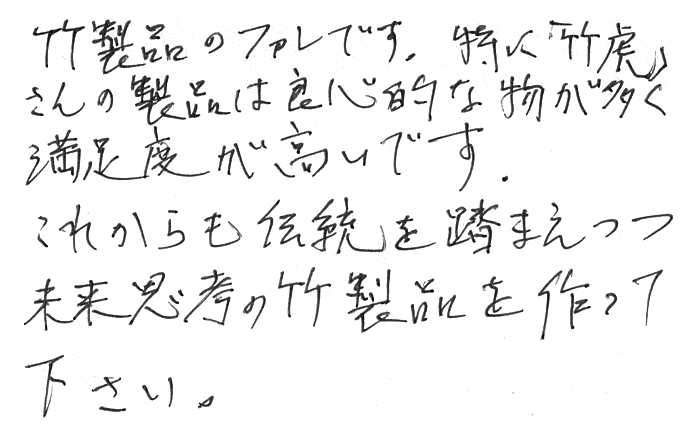 竹製品のファンです。特に「竹虎」
さんの製品は良心的な物が多く
満足度が高いです。
これからも伝統を踏まえつつ
未来思考の竹製品を作って
下さい。